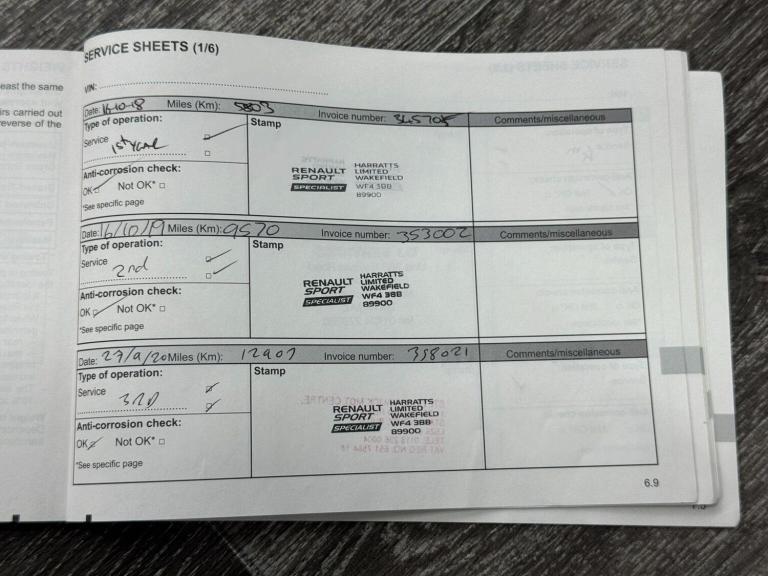 SERVICE SHEETS (1/6)
VIN:
east the same
irs carried out
everse of the
Date: 16-10-18 Miles (Km): 5803 Invoice number: 345705 Comments/miscellaneous
Type of operation:
Stamp
Service
1st Year
Anti-corrosion check:
OK Not OK*
*See specific page
RENAULT
SPORT
SPECIALIST
HARRATTS
LIMITED
WAKEFIELD
WF4 3BB
89900
Date: 16/10/19 Miles (Km): 9570 Invoice number: 353002 Comments/miscellaneous
Type of operation:
Stamp
Service
2nd
Anti-corrosion check:
OK Not OK*
*See specific page
RENAULT
SPORT
SPECIALIST
HARRATTS
LIMITED
WAKEFIELD
WF4 3BB
89900
Date: 27/9/20 Miles (Km): 12907 Invoice number: 358021 Comments/miscellaneous
Type of operation:
Stamp
Service
3RD
Anti-corrosion check:
OK Not OK*
*See specific page
RENAULT
SPORT
SPECIALIST
HARRATTS
LIMITED
WAKEFIELD
WF4 3BB
89900
6.9